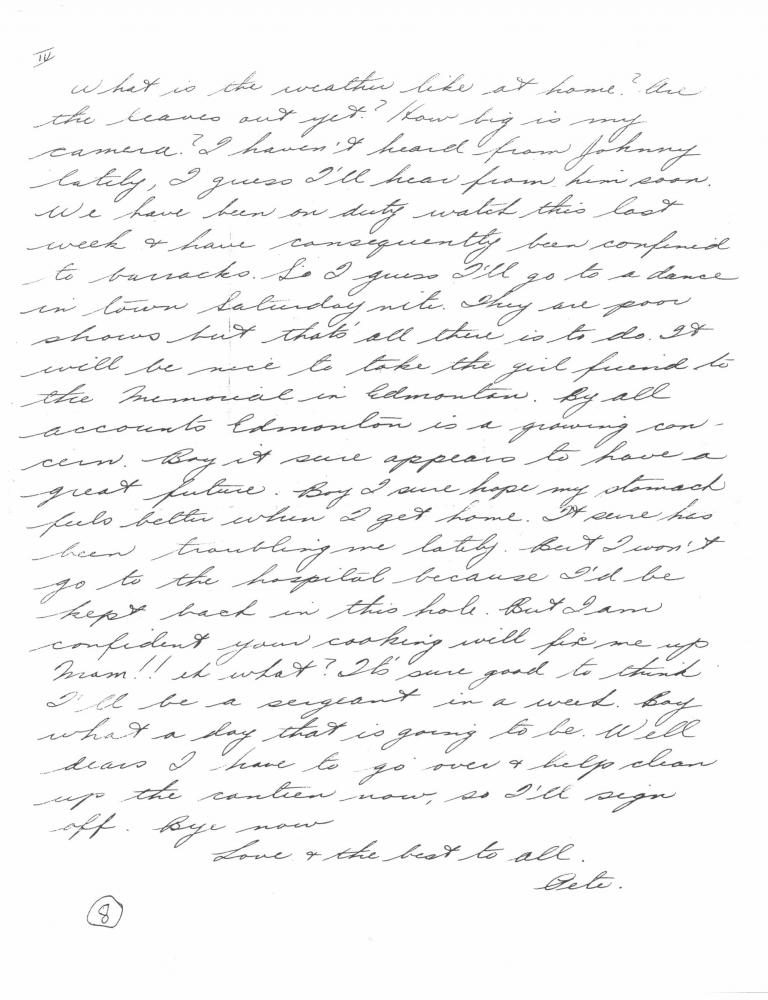 IV
What is the weather like at home? Are
the leaves out yet? How big is my
camera? I haven't heard from Johnny
lately, I guess I'll hear from him soon.
We have been on duty watch this last
week & have consequently been confined
to barracks. So I guess I'll go to a dance
in town Saturday nite. They are poor
shows but that's all there is to do. It
will be nice to take the girl friend to
the Memorial in Edmonton. By all
accounts Edmonton is a growing con-
cern. Boy it sure appears to have a
great future. Boy I sure hope my stomach
feels better when I get home. It sure has
been troubling me lately. But I won't
go to the hospital because I'd be
kept back in this hole. But I am
confident your cooking will fix me up
Mom!! eh what? It's sure good to think
I'll be a sergeant in a week. Boy
what a day that is going to be. Well
dears I have to go over & help clean
up the canteen now, so I'll sign
off. Bye now
Love & the best to all.
Pete.
8